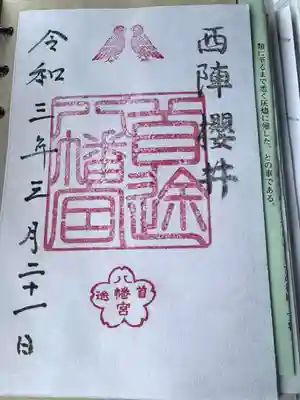 西陣櫻井
首途
八幡宮
首途
八幡宮
令和三年三月二十一日
類に至るまで悉く灰燼に帰した、との事である。